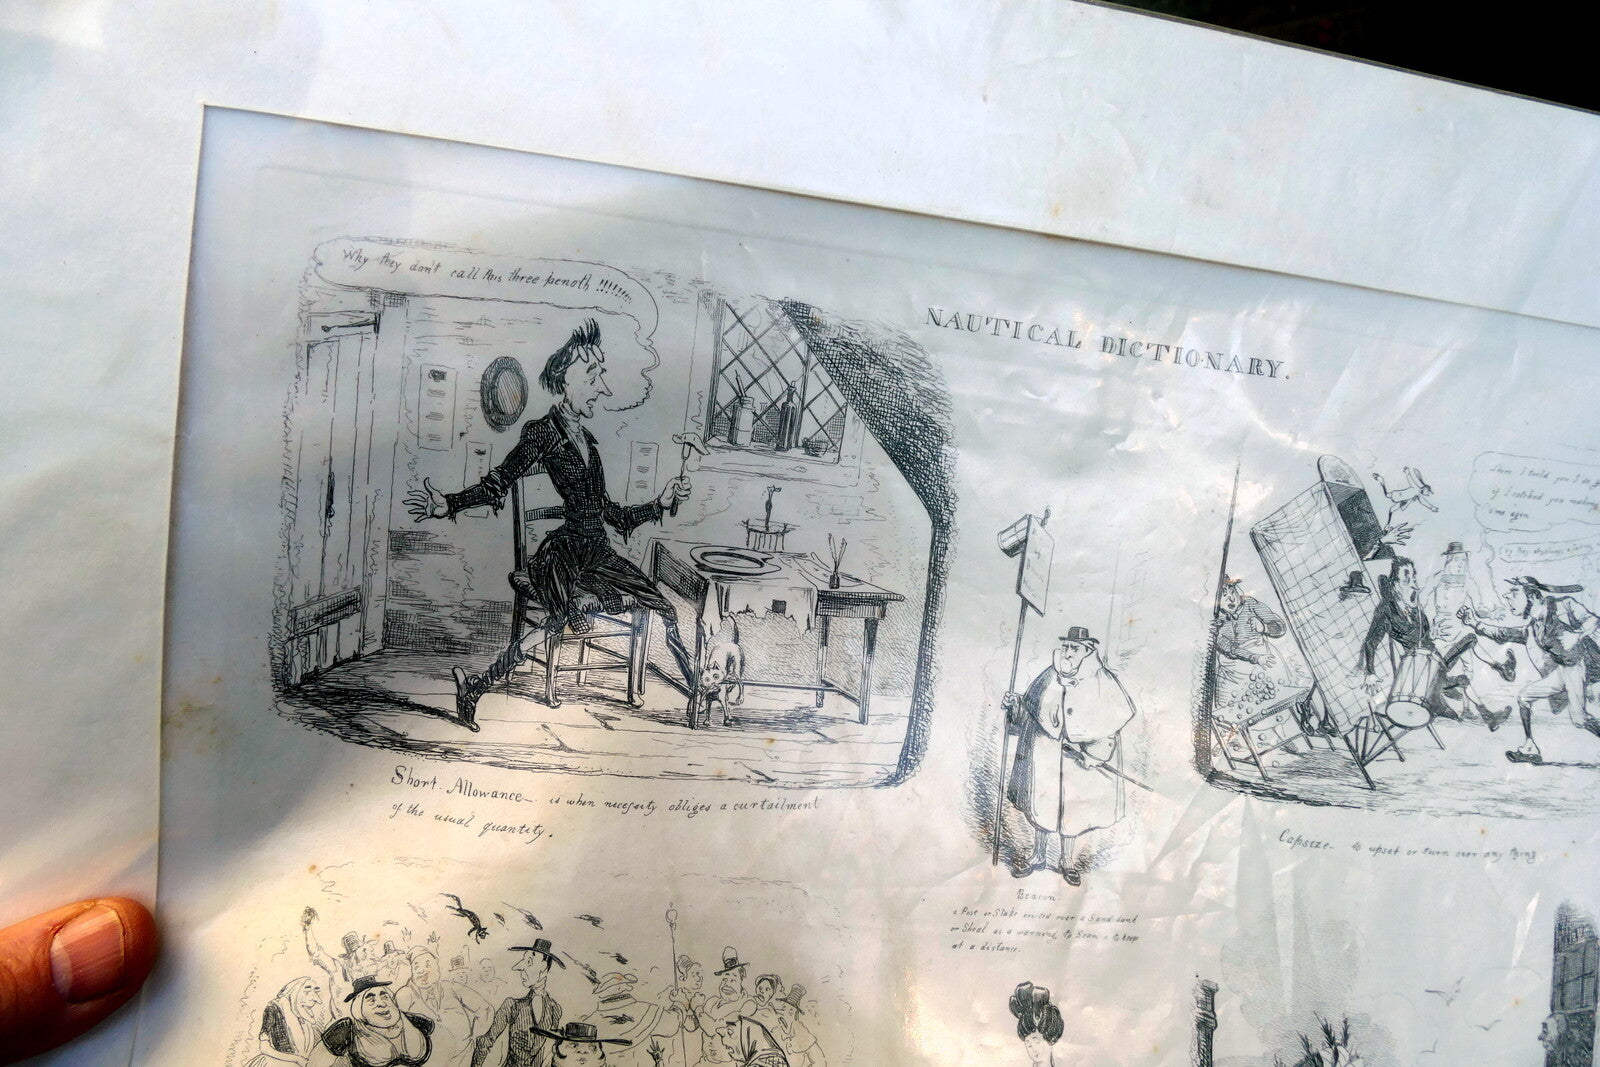 Why they don't call this three penoth !!!!!!!
NAUTICAL DICTIONARY.
Sham I told you I'd
if I catched you making
ome agen
Short Allowance is when necessity obliges a curtailment
of the usual quantity.
Beacon.
a Post or Stake erected over a Sand bank
or Shoal as a warnning to Seamen to keep
at a distance.
Capsize to upset or turn over any thing